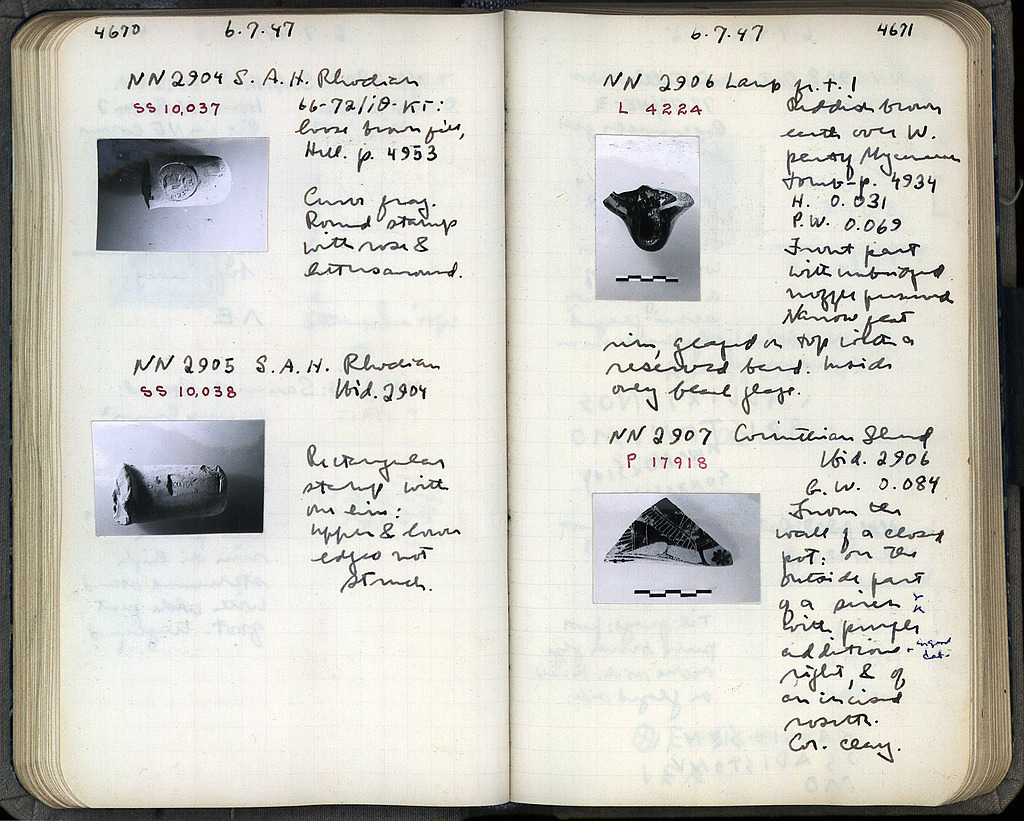 4670
6.7.47
NN 2904 S.A.H. Rhodian
SS 10,037
66-72/ιθ-κς:
loose brown fill,
Hell. p. 4953
Curved frag.
Round stamp
with rose &
letters around.
NN 2905 S.A.H. Rhodian
SS 10,038
Ibid. 2904
Rectangular
stamp with
one line:
upper & lower
edges not
struck.
6.7.47
4671
NN 2906 Lamp fr. t. 1
L 4224
Reddish brown
earth over W.
part of Mycenaean
tomb - p. 4934
H. 0.031
P.W. 0.069
Front part
with unbridged
nozzle preserved
Narrow flat
rim, glazed on top with a
reserved band. Inside
only black glaze.
NN 2907 Corinthian Sherd
P 17918
Ibid. 2906
G.W. 0.084
From the
wall of a closed
pot: on the
outside part
of a siren
with purple
additions
right, & of
an incised
rosette.
Cor. clay.